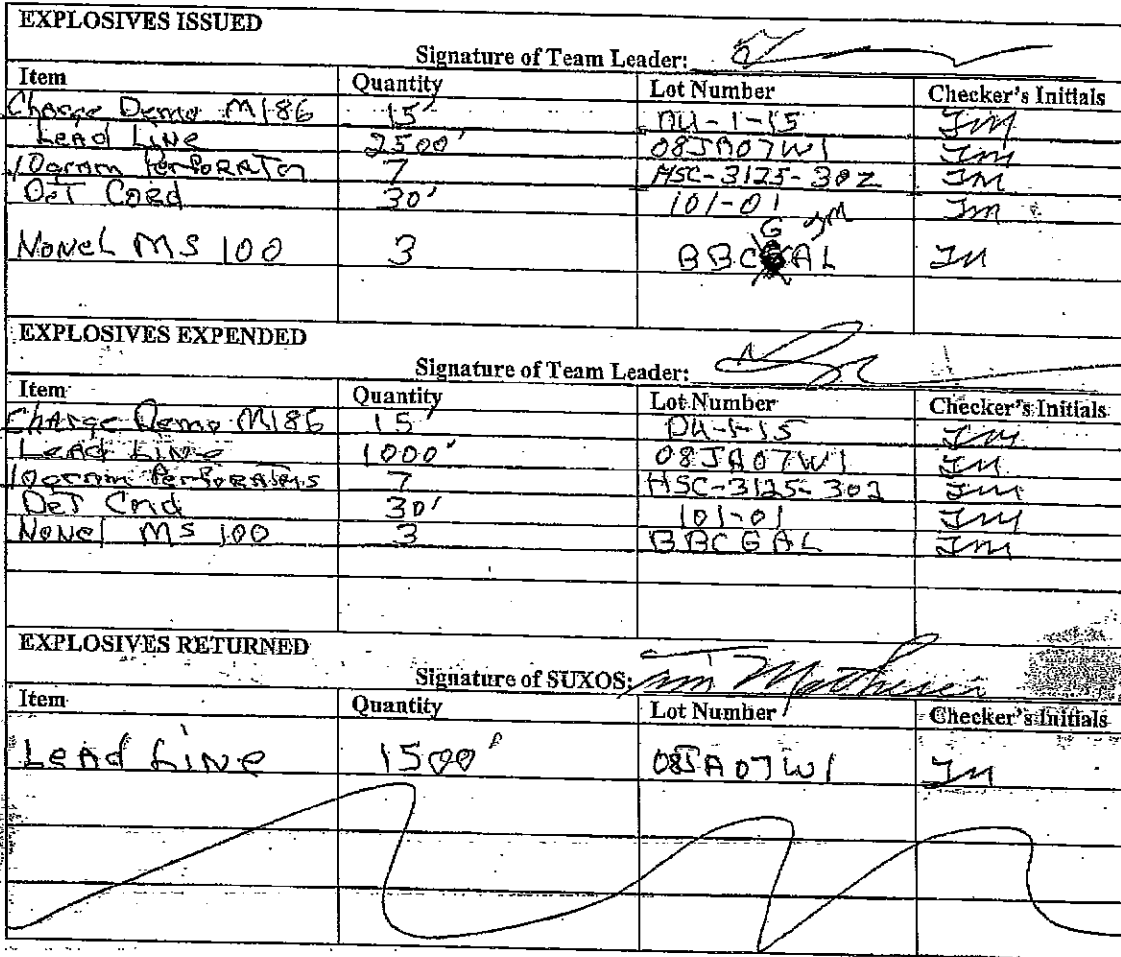 EXPLOSIVES ISSUED
Signature of Team Leader:
Item Quantity Lot Number Checker's Initials
Charge Demo M186 15' DU-1-15 JM
Lead Line 2500' 08JA07W1 JM
10gram Perforator 7 HSC-3125-302 JM
Det Cord 30' 101-01 JM
G JM
Nonel MS 100 3 BBC AL JM
EXPLOSIVES EXPENDED
Signature of Team Leader:
Item Quantity Lot Number Checker's Initials
Charge Demo M186 15' DU-1-15 JM
Lead Line 1000' 08JA07W1 JM
10gram Perforators 7 HSC-3125-302 JM
Det Cord 30' 101-01 JM
Nonel MS 100 3 BBCGAL JM
EXPLOSIVES RETURNED
Signature of SUXOS:
Item Quantity Lot Number Checker's Initials
Lead Line 1500' 08JA07W1 JM